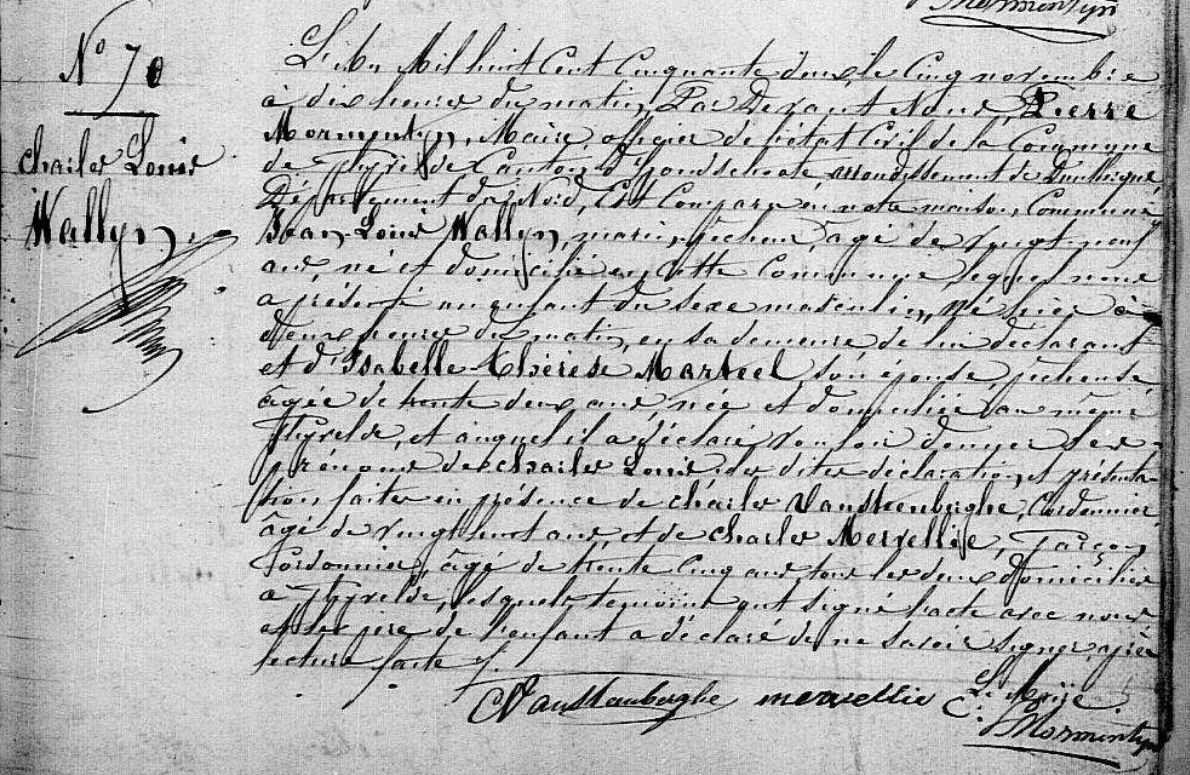 Mormentyn
N° 70
Charles Louis
Wallyn
L'An Mil huit Cent Cinquante deux, le Cinq novembre
à dix heures du matin, Par Devant Nous, Pierre
Mormentyn, Maire, officier de l'état Civil de la Commune
de Ghyvelde, Canton d'hondschoote, arrondissement de Dunkerque,
Département du Nord, Est Comparu en notre maison Commune
Jean Louis Wallyn, marin pêcheur, agé de vingt-neuf
ans, né et domicilié en cette Commune, lequel nous
a présenté un enfant du sexe masculin, Né hier à
deux heures du matin, en sa demeure de lui déclarant
et d'Isabelle Thérèse Marteel, son épouse, pêcheuse
âgée de trente deux ans, née et domiciliée au même
Ghyvelde, et auquel il a déclaré vouloir donner les
prénoms de Charles Louis, les dites déclaration et présenta-
tion faites en présence de Charles Vanstenberghe, Cordonnier,
âgé de vingt sept ans, et de Charles Mervellie, Garçon
Cordonnier, âgé de trente Cinq ans, tous les deux domiciliés
à Ghyvelde, lesquels témoins ont signé l'acte avec nous
et le père de l'enfant a déclaré de ne savoir signer, après
lecture faite /.
CVanstenberghe mervellie L. Maire.
Mormentyn